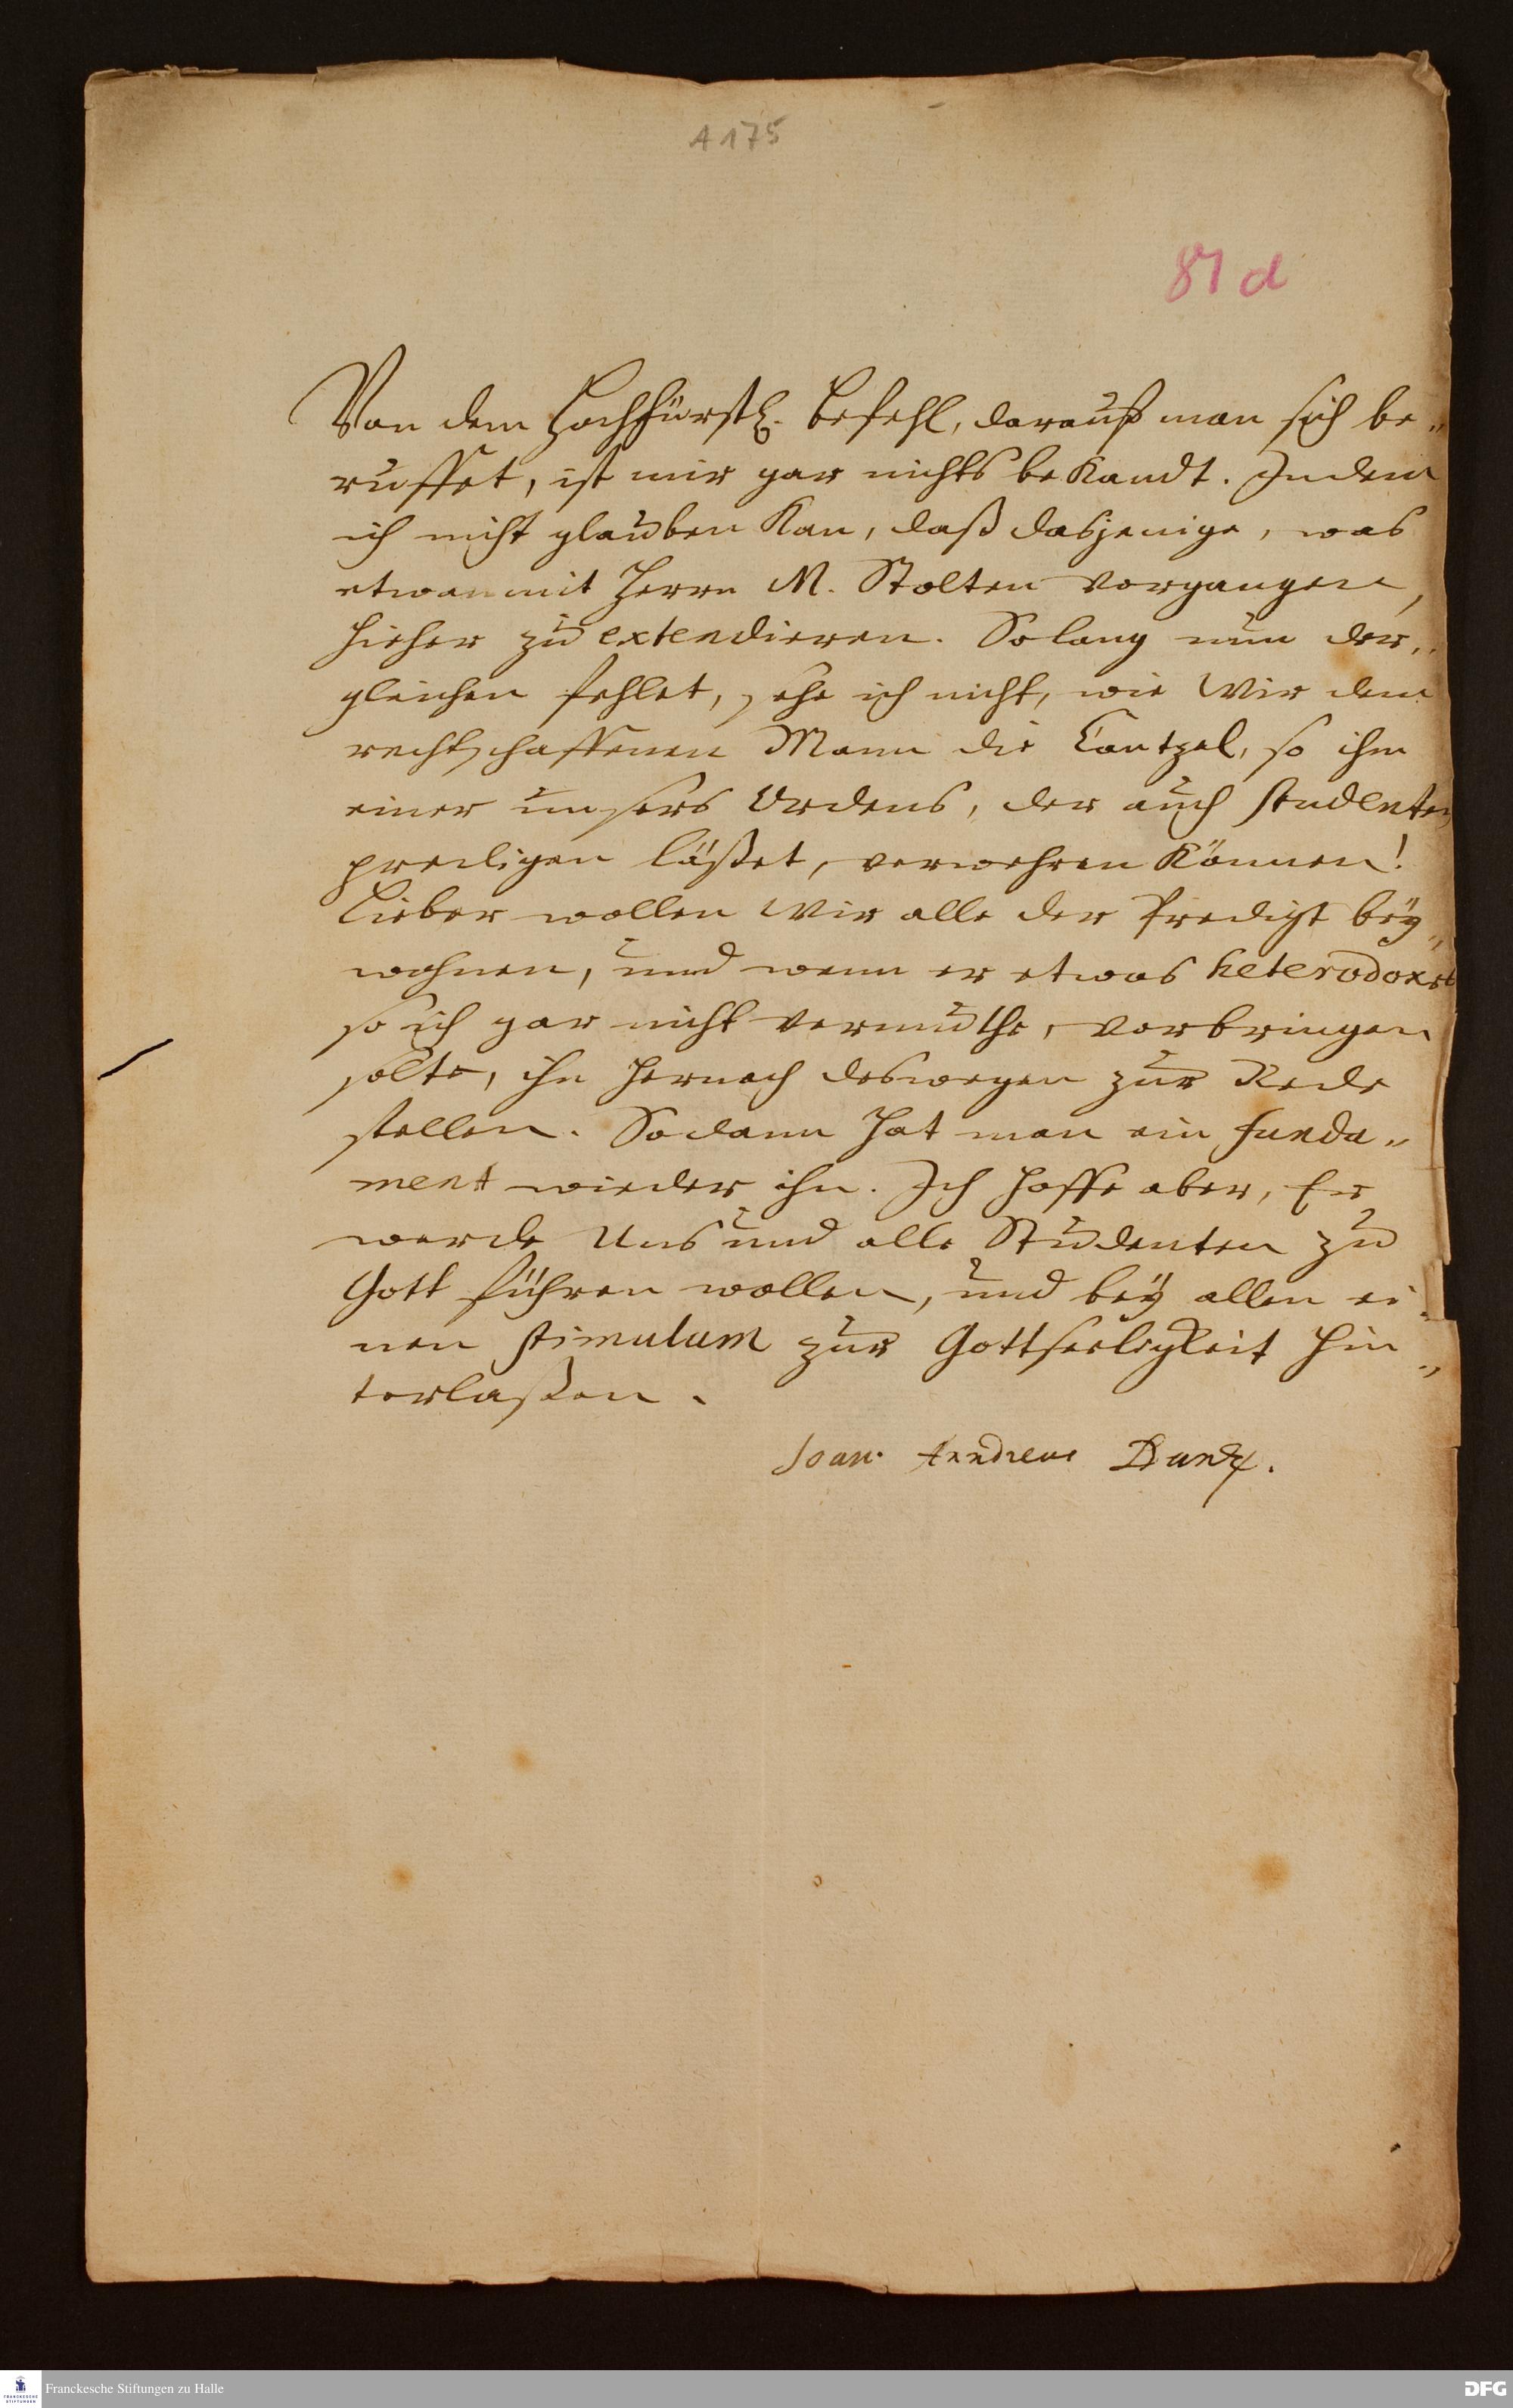 A 175
87 d
Von dem Hochfürstl. Befehl, darauf man sich be„
ruffet, ist mir gar nichts bekandt. Indem
ich nicht glauben kan, daß dasjenige, was
etwan mit Herrn M. Stolten vorgangen,
hieher zu extendieren. Solang nun der„
gleichen fehlet, sehe ich nicht, wie Wir dem
rechtschaffenen Mann die Cantzel, so ihm
einer unsers Ordens, der auch studenten
predigen läßet, verwehren können!
Lieber wollen Wir alle der Predigt bey„
wohnen, und wenn er etwas heterodoxes
so ich gar nicht vermuthe, vorbringen
solte, ihn hernach deswegen zur Rede
stellen. Sodann hat man ein funda„
ment wieder ihn. Ich hoffe aber, Er
werde Uns und alle Studenten zu
Gott führen wollen, und bey allen ei„
nen stimulum zur Gottseeligkeit hin„
terlaßen.
Joan. Andreas Dantz.
Franckesche Stiftungen zu Halle
FRANCKESCHE
STIFTUNGEN
DFG